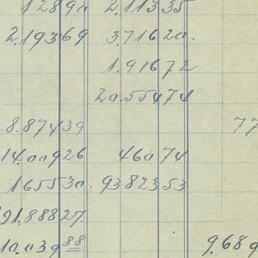 1289a 2.11335
2.19369 3.7162a.
1.91672
2a.55474
8.87439 77
14.aa926 46a74
16553a. 9382353
91.88827
10.a39 88 9.689